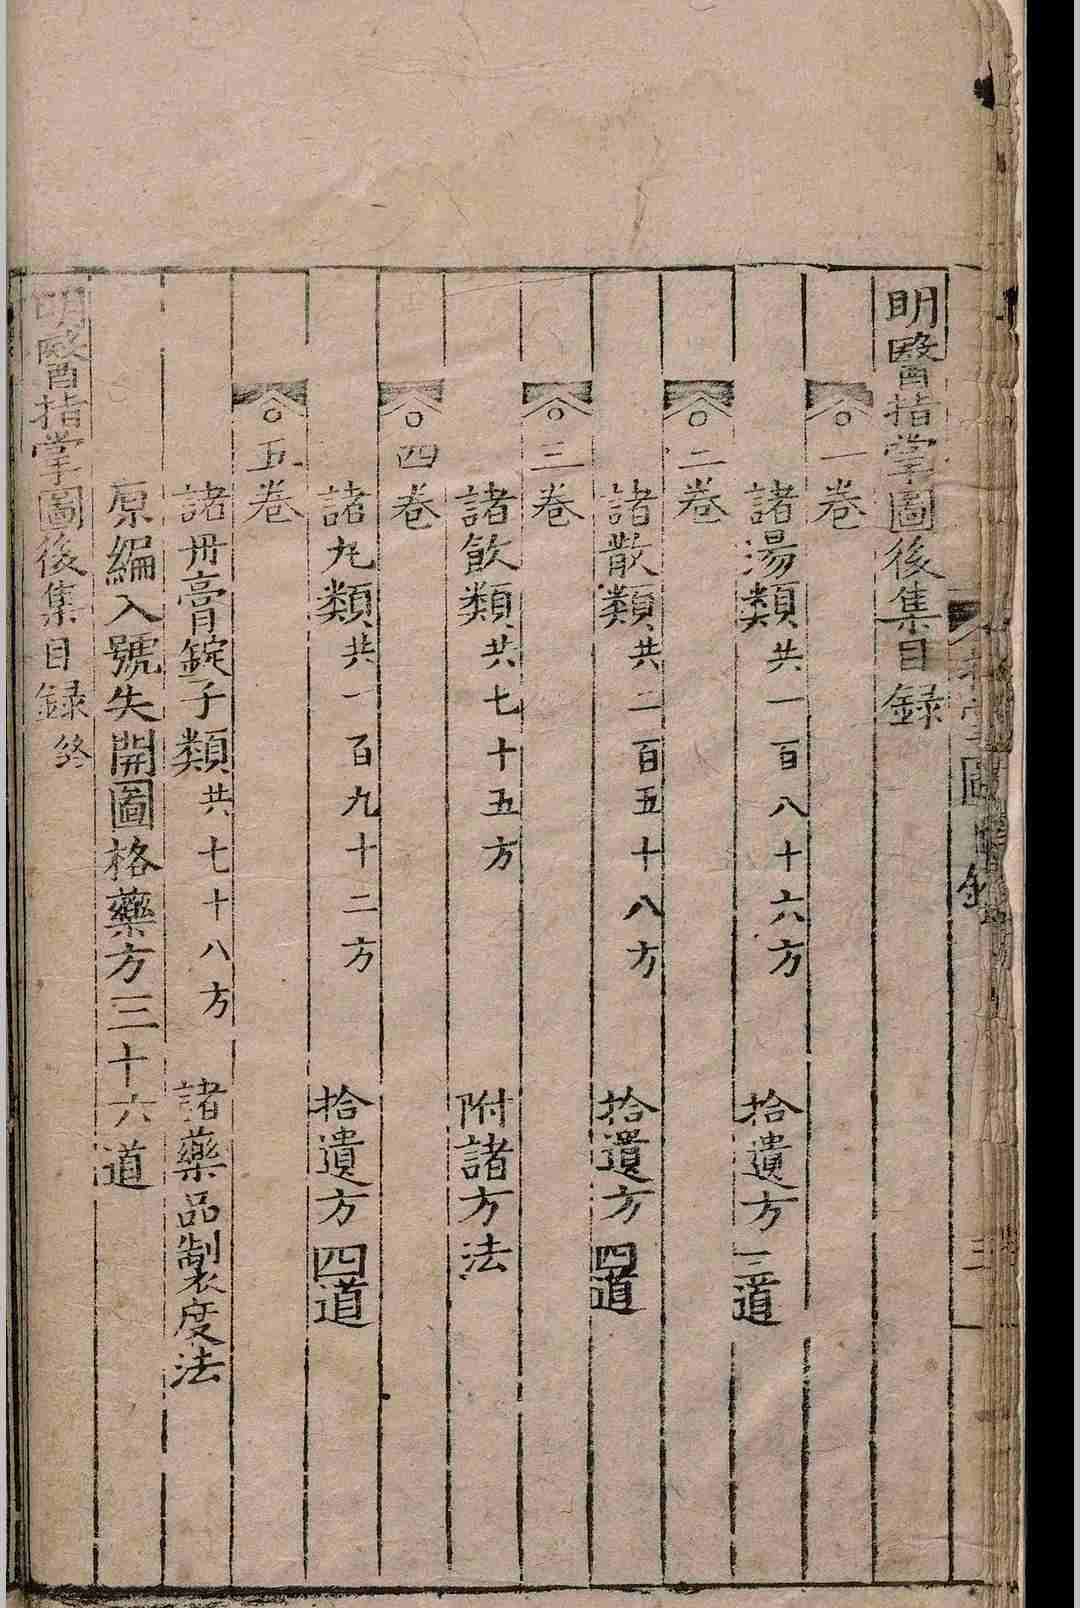 明醫指掌圖後集目録
一卷
諸湯類共一百八十六方 拾遺方三道
二卷
諸散類共二百五十八方 拾遺方四道
三卷
諸飲類共七十五方 附諸方法
四卷
諸丸類共一百九十二方 拾遺方四道
五卷
諸丹膏錠子類共七十八方 諸藥品製度法
原編入號失開圖格藥方三十六道
明醫指掌圖後集目録終